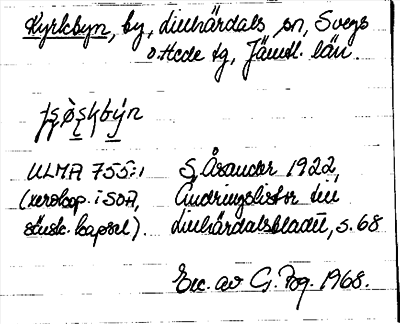 Kyrkbyn, by, Linhärdals sn, Svegs
o. Hede tg, Jämtl. län.
ULMA 755:1 S. Åsander 1922,
(xerokop. i SOA, Ändringslistor till
stusk. kapsel). Linhärdalsbladet, s. 68
Exc. av G. 1968.